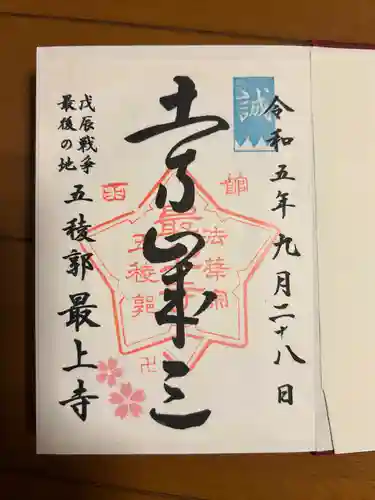 誠
令和五年九月二十八日
土方歳三
戊辰戦争
最後の地
五稜郭最上寺
法華宗
最上寺
五稜郭
函
館
卍